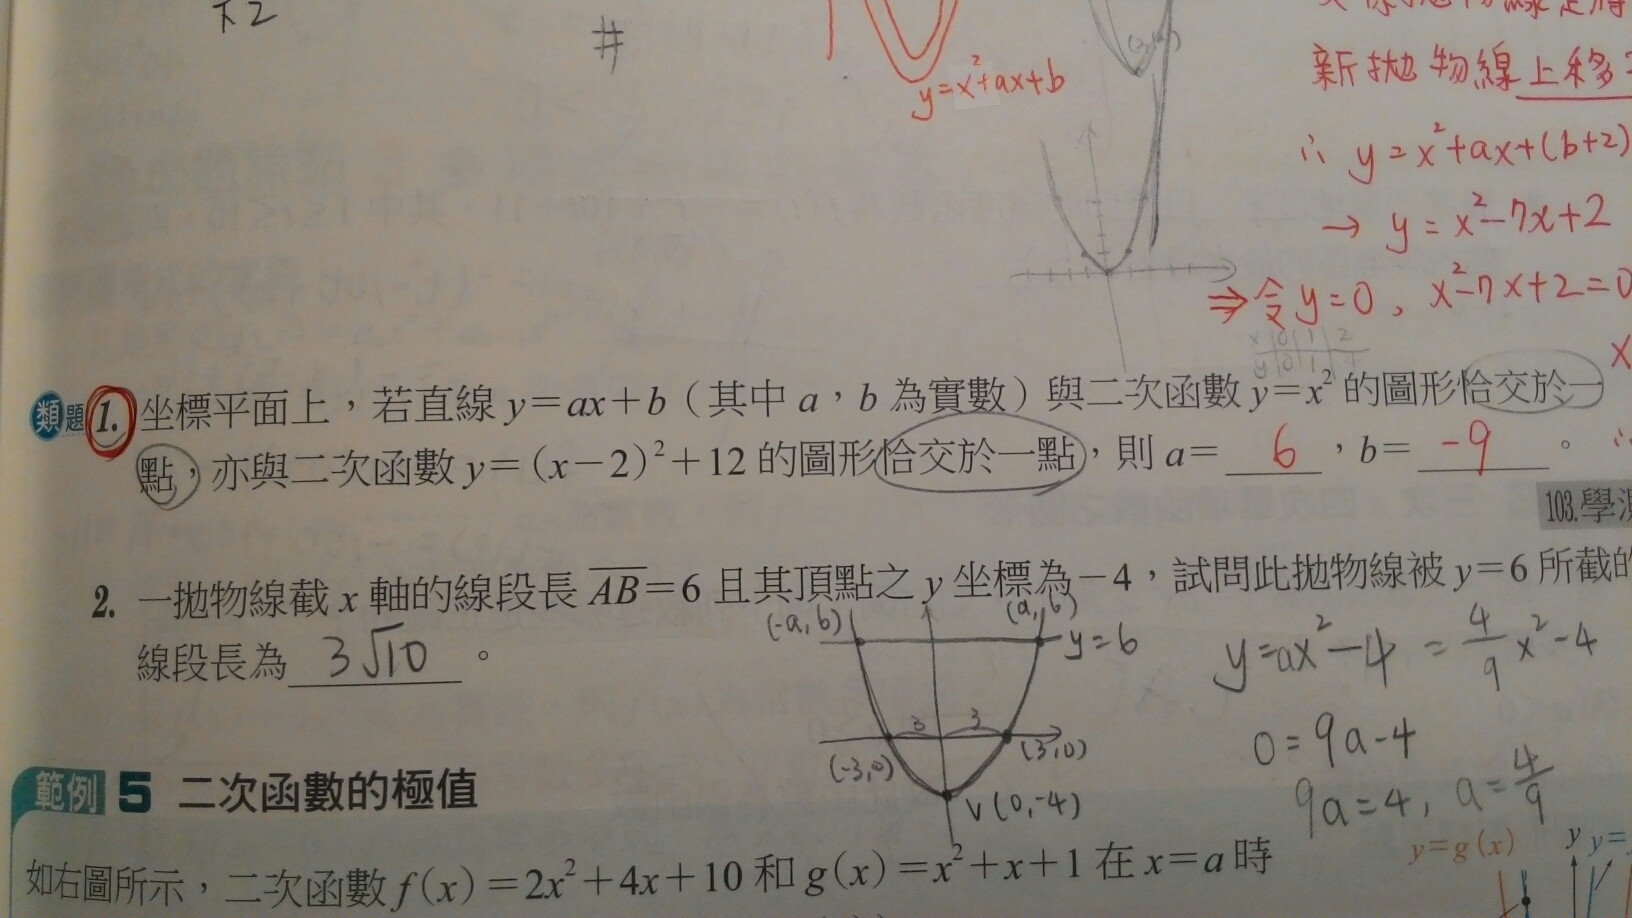 #
y=x²+ax+b
新拋物線上移
∴ y=x²+ax+(b+2)
→ y=x²-7x+2
⇒令y=0, x²-7x+2=0
x 0 1 2
y 0 1 4
類題 1. 坐標平面上，若直線 y=ax+b（其中 a，b 為實數）與二次函數 y=x² 的圖形恰交於一
點，亦與二次函數 y=(x-2)²+12 的圖形恰交於一點，則 a= 6 ，b= -9 。
103.學測
2. 一拋物線截 x 軸的線段長 \overline{AB}=6 且其頂點之 y 坐標為-4，試問此拋物線被 y=6 所截的
線段長為 3√10 。
(-a, b) (a, b)
y=6
3 3
(-3,0) (3,0)
V(0,-4)
y=ax²-4 = 4/9 x²-4
0=9a-4
9a=4, a=4/9
範例 5 二次函數的極值
如右圖所示，二次函數 f(x)=2x²+4x+10 和 g(x)=x²+x+1 在 x=a 時
y=g(x) y y=